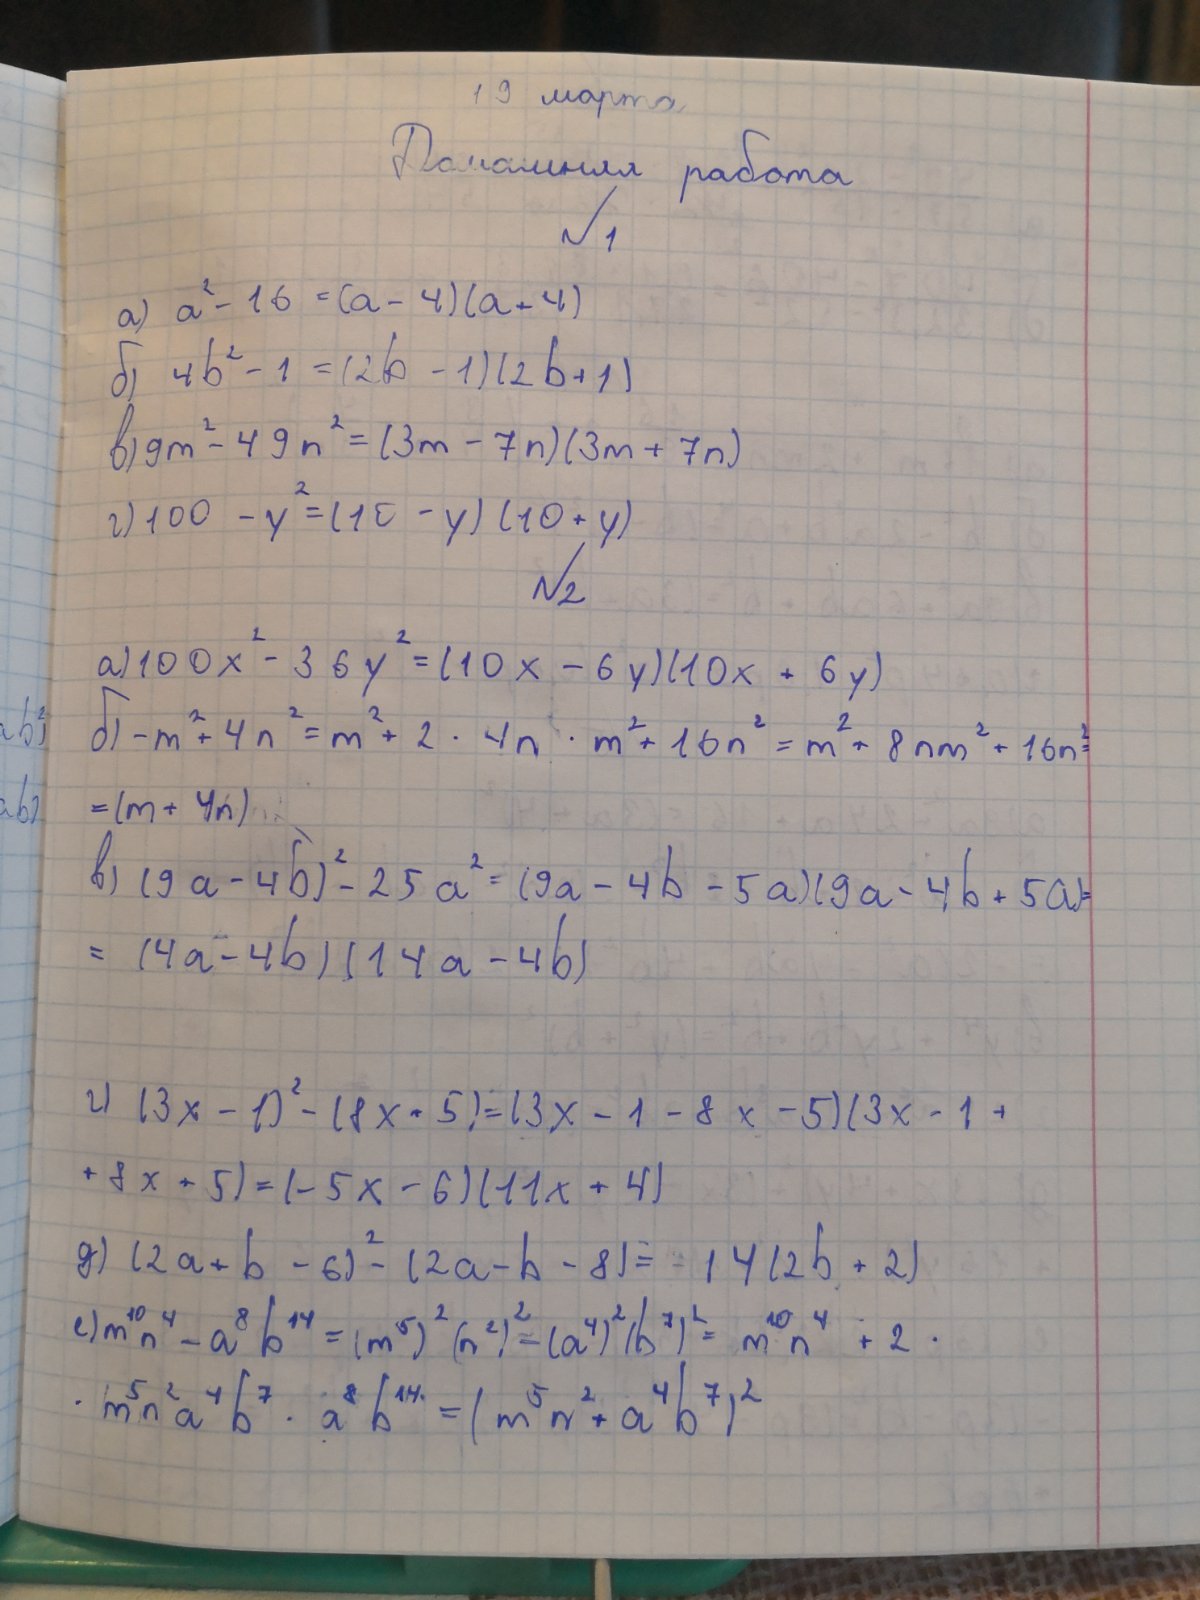 19 марта
Домашняя работа
№1
а) a² - 16 = (a - 4)(a + 4)
б) 4b² - 1 = (2b - 1)(2b + 1)
в) 9m² - 49n² = (3m - 7n)(3m + 7n)
г) 100 - y² = (10 - y)(10 + y)
№2
а) 100x² - 36y² = (10x - 6y)(10x + 6y)
б) -m² + 4n² = m² + 2 · 4n · m² + 16n² = m² + 8nm² + 16n² =
= (m + 4n)
в) (9a - 4b)² - 25a² = (9a - 4b - 5a)(9a - 4b + 5a) =
= (4a - 4b)(14a - 4b)
г) (3x - 1)² - (8x + 5) = (3x - 1 - 8x - 5)(3x - 1 +
+ 8x + 5) = (-5x - 6)(11x + 4)
д) (2a + b - 6)² - (2a - b - 8) = 14(2b + 2)
е) m¹⁰n⁴ - a⁸b¹⁴ = (m⁵)²(n²)² - (a⁴)²(b⁷)² = m¹⁰n⁴ + 2 ·
· m⁵n²a⁴b⁷ · a⁸b¹⁴ = (m⁵n² + a⁴b⁷)²